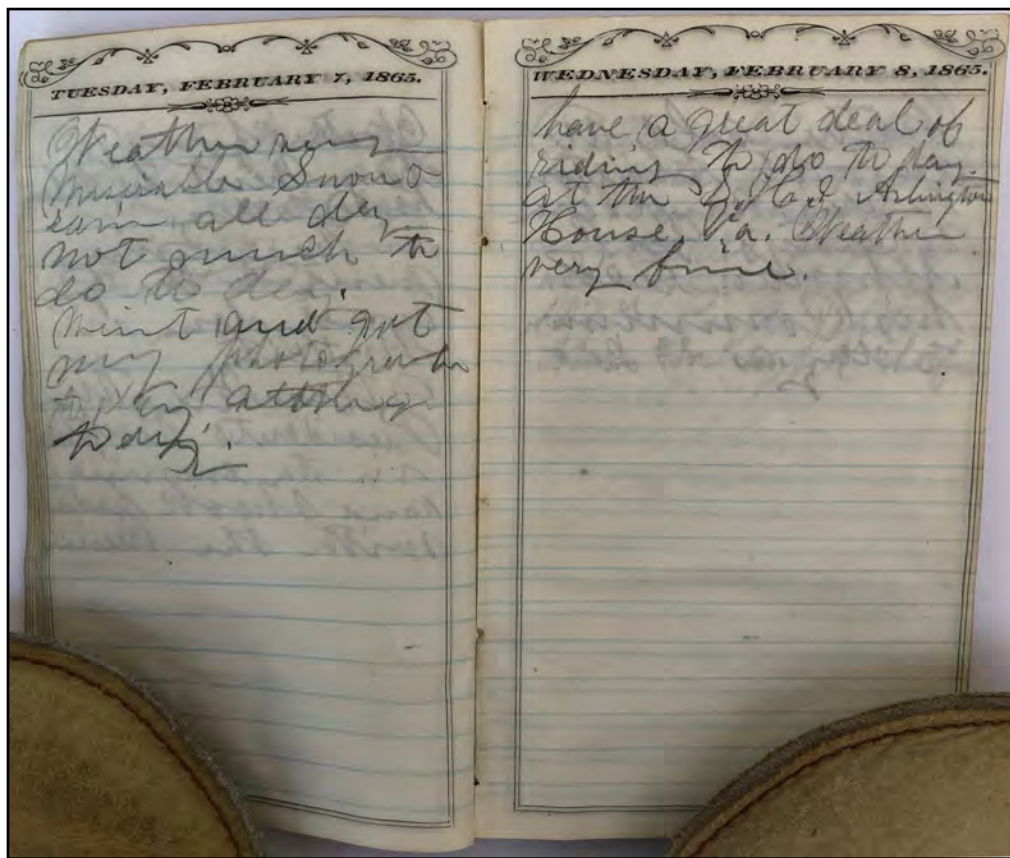 TUESDAY, FEBRUARY 7, 1865.
Weather very
Miserable Snow &
rain all day
not much to
do to day.
Went and got
my photograph
to day.
WEDNESDAY, FEBRUARY 8, 1865.
have a great deal of
riding to do to day.
at the Arlington
House, Va. Weather
very fine.